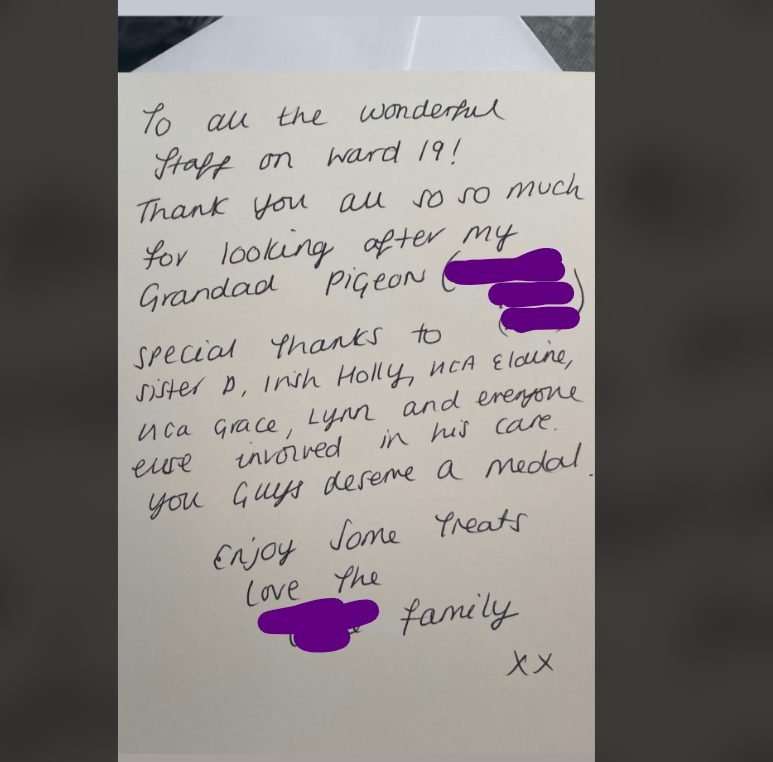 To all the wonderful
Staff on ward 19!
Thank you all so so much
for looking after my
Grandad Pigeon (
)
Special thanks to
Sister D, Irish Holly, HCA Elaine,
HCA Grace, Lynn and everyone
else involved in his care.
You Guys deserve a medal.
Enjoy some treats
Love the
family
xx